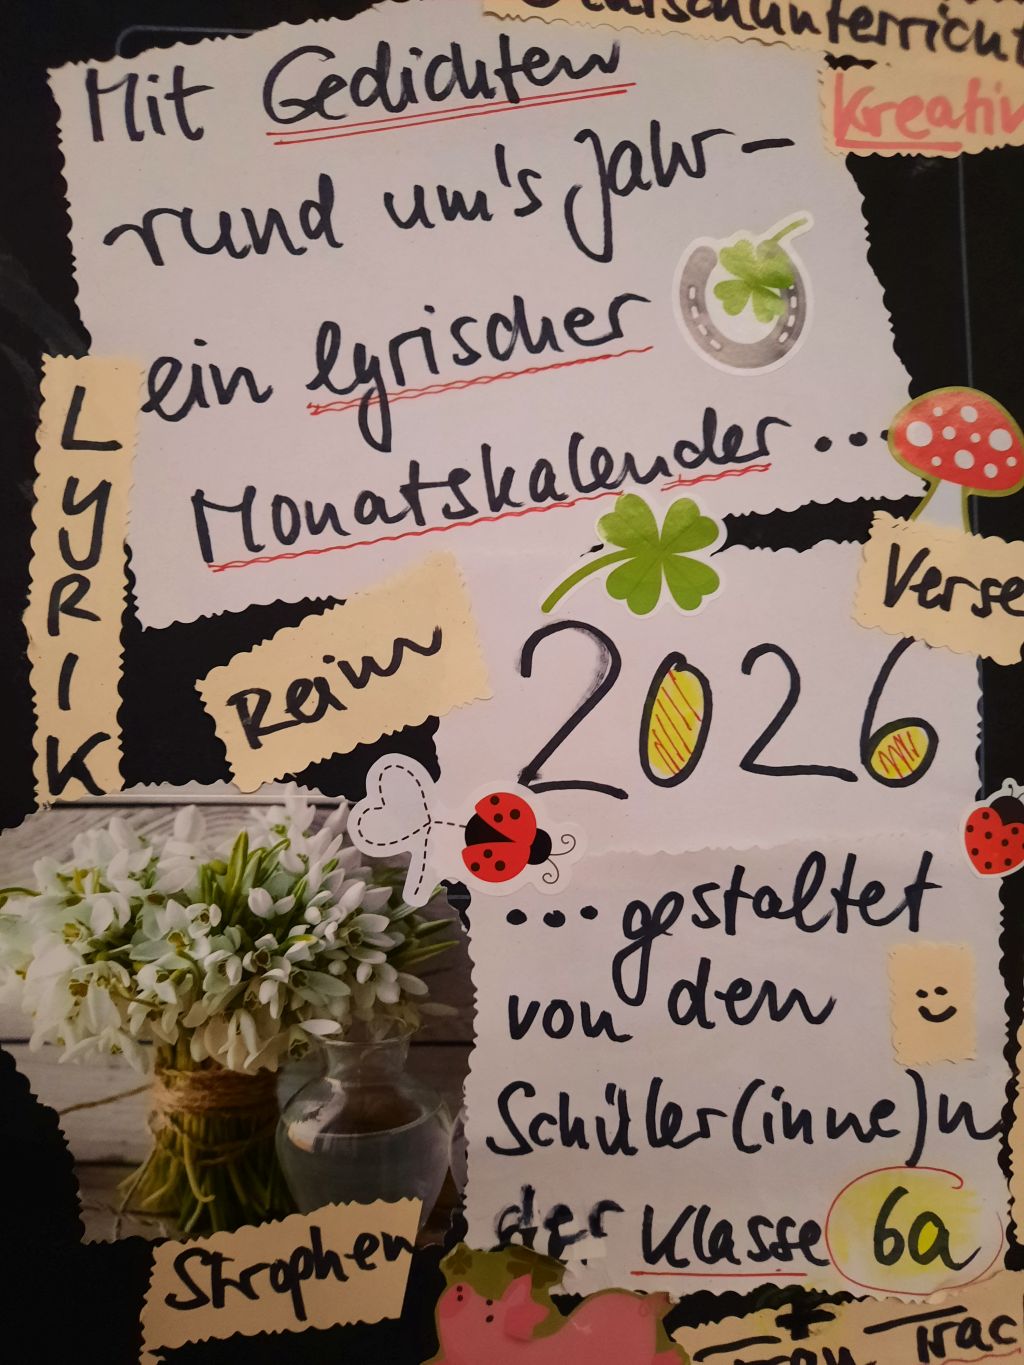 Mit Gedichten
rund um's Jahr -
ein lyrischer
Monatskalender ...
kreativ
LYRIK
Reim
Verse
2026
... gestaltet
von den
Schüler(inne)n
der Klasse 6a
Strophen